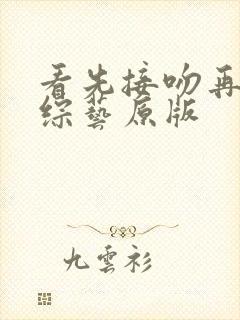 看先接吻再
綜藝原版
九雲衫